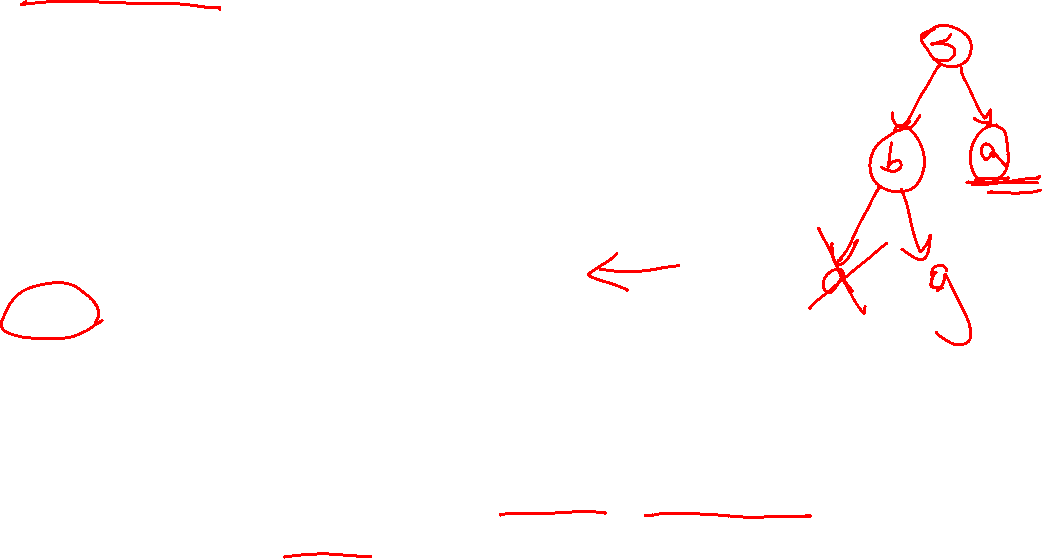 s
b a
a g